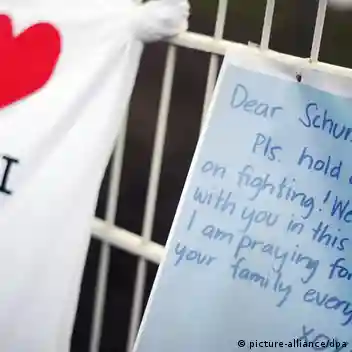 I
Dear
Pls. hold
on fighting! We
with you in this
I am praying for
your family every
(c) picture-alliance/dpa